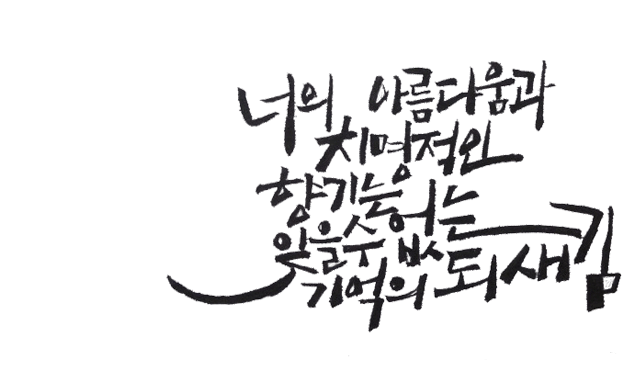 너의 아름다움과
치명적인
향기는
잊을 수 없는
기억의 되새김